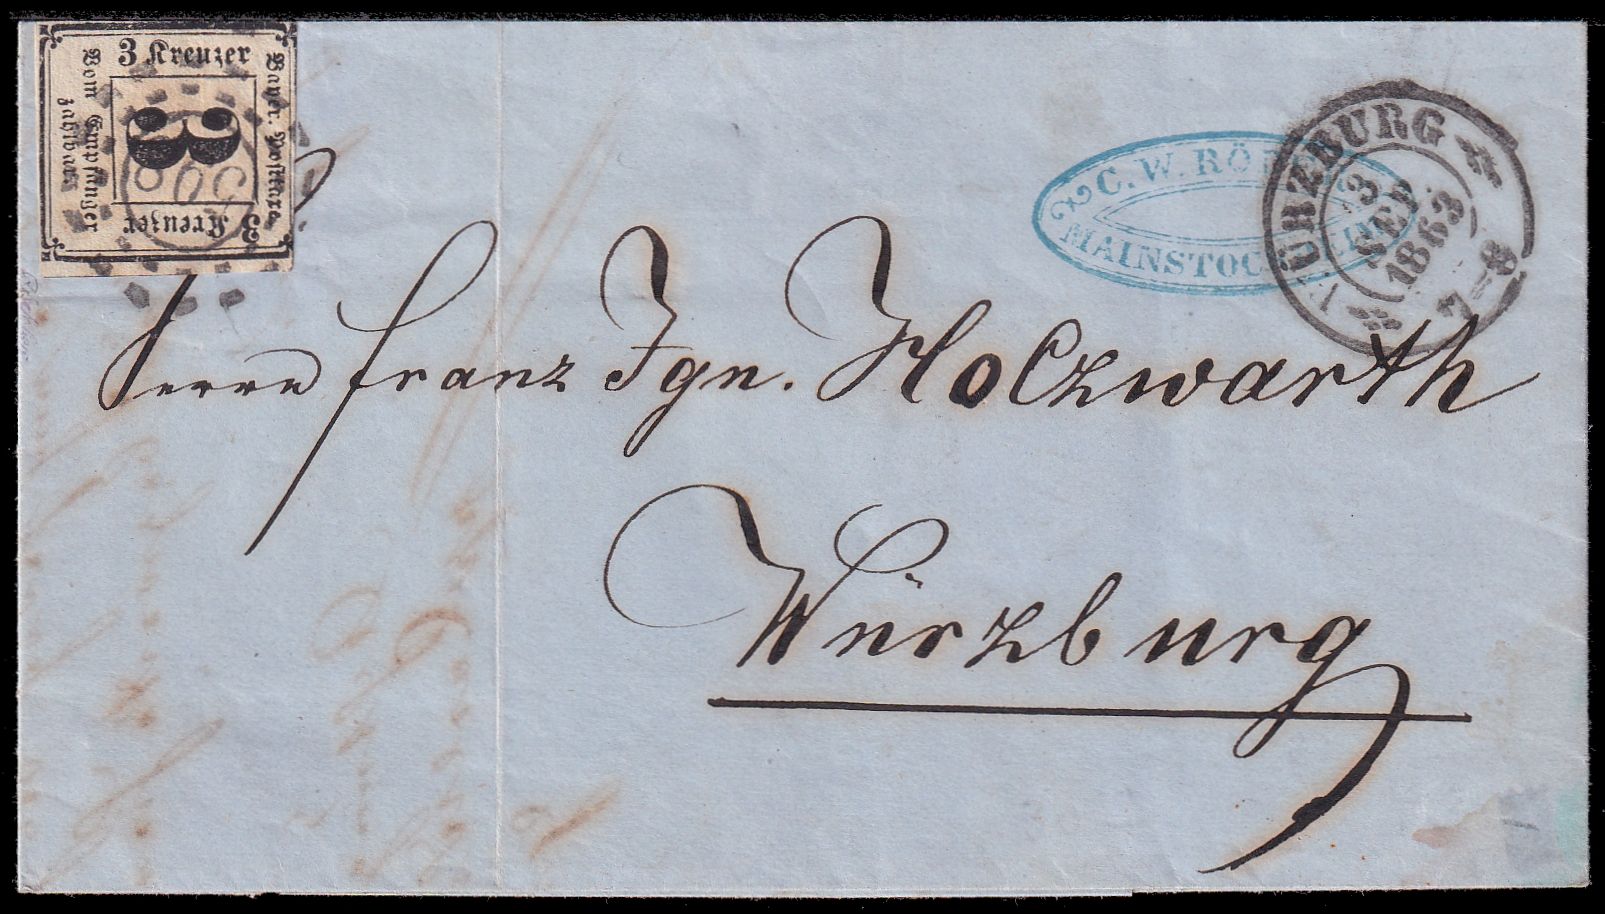 3 Kreuzer
Bayer. Posttaxe
Vom Empfänger
zahlbar
3
3 Kreuzer
C. W. RÖ
MAINSTOC
WÜRZBURG
3
SEP
1863
7-8
Herrn Franz Ign. Holzwarth
Würzburg